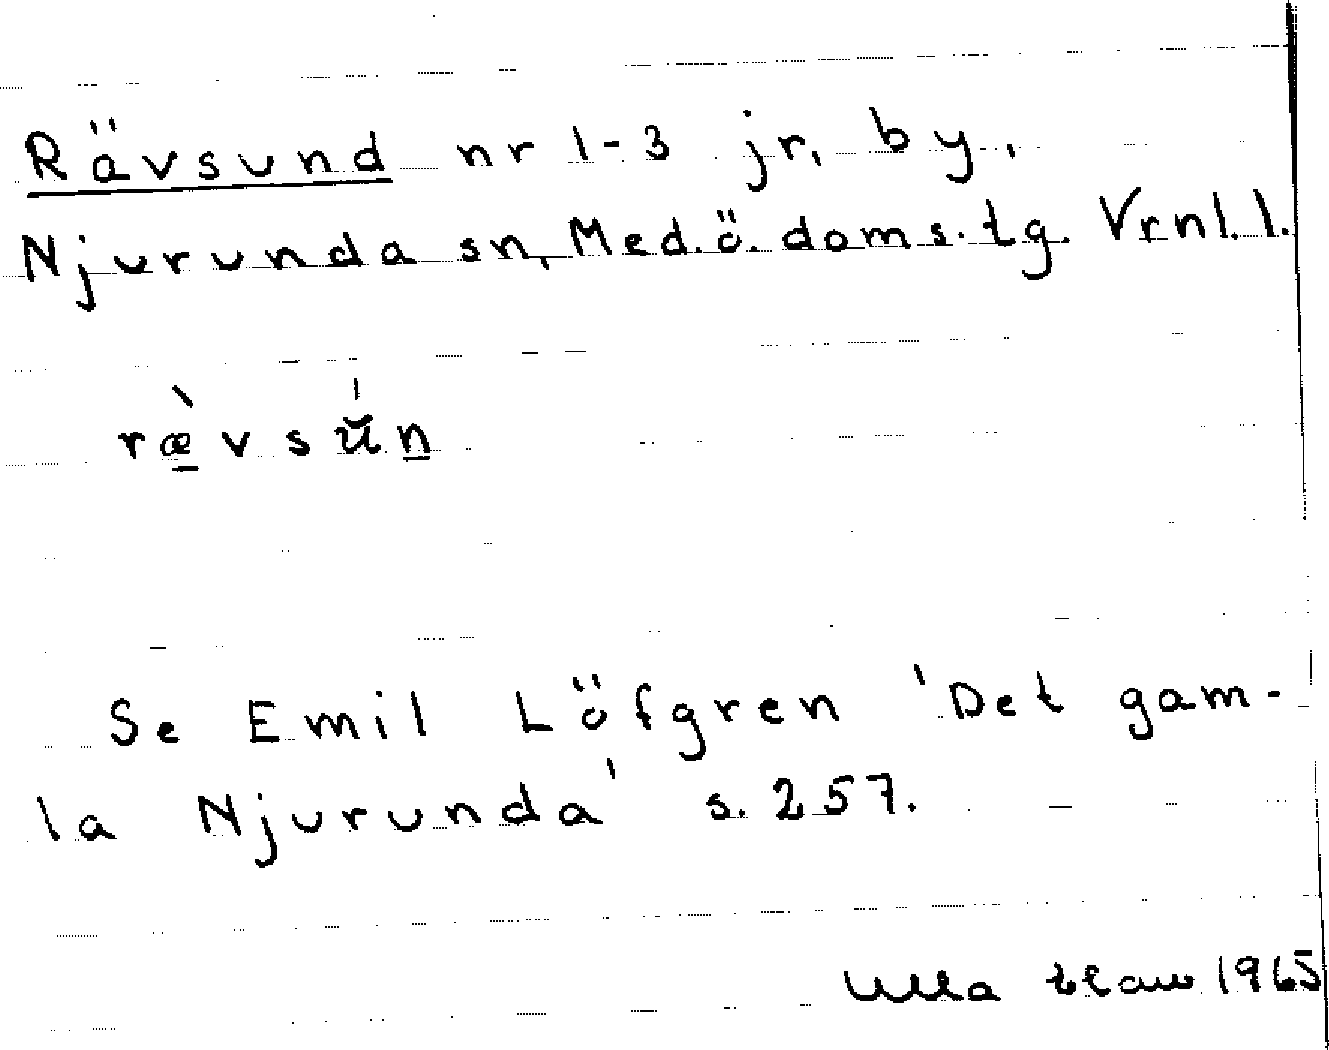 Rävsund nr 1-3 jr, by,
Njurunda sn, Med.ö.doms.tg. Vrnl.l.
ræ̱̀vsǔ́n̲
Se Emil Löfgren 'Det gam-
la Njurunda' s. 257.
Ulla 1965